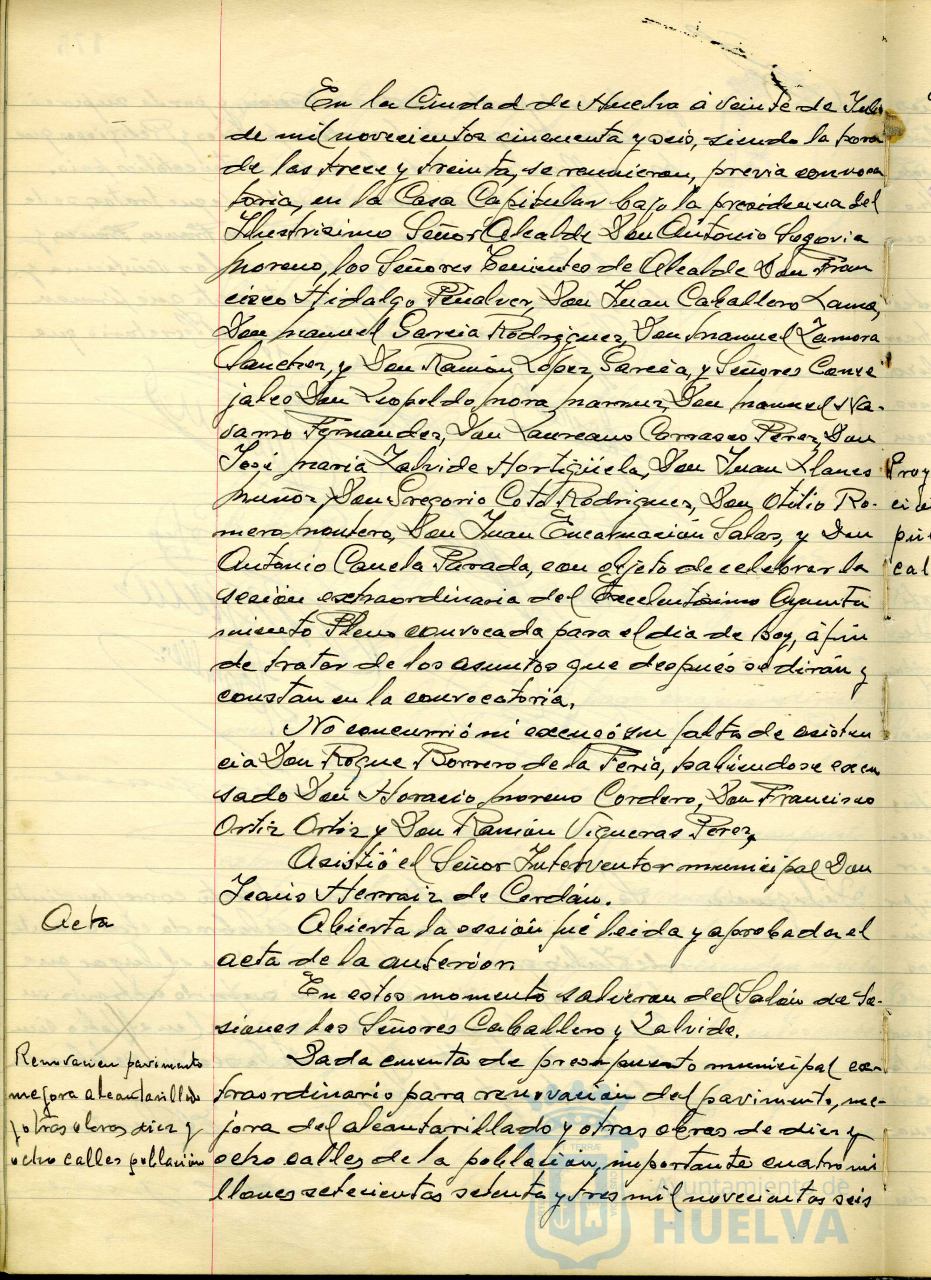 En la Ciudad de Huelva á veinte de Julio
de mil novecientos cincuenta y seis, siendo la hora
de las trece y treinta, se reunieron, previa convoca
toria, en la Casa Capitular bajo la presidencia del
Ilustrisimo Señor Alcalde Don Antonio Segovia
Moreno, los Señores Tenientes de Alcalde Don Fran
cisco Hidalgo Peñalver, Don Juan Caballero Lama,
Don Manuel Garcia Rodriguez, Don Manuel Zamora
Sanchez, y Don Ramón López Garcia, y Señores Conce
jales Don Leopoldo Mora Don Manuel Na-
varro Fernandez, Don Laureano Carrasco Perez, Don
José Maria Zalvide Hortigüela, Don Juan Llanes
Muñoz Don Gregorio Coto Rodriguez, Don Otilio Ro-
mero Montero, Don Juan Encarnación Salas, y Don
Antonio Canela Parada, con objeto de celebrar la
sesión extraordinaria del Excelentisimo Ayunta
miento Pleno convocada para el dia de hoy, á fin
de tratar de los asuntos que después se dirán y
constan en la convocatoria.
No concurrió ni excusó su falta de asisten
cia Don Roque Borrero de la Feria, habiendose excu
sado Don Horacio Moreno Cordero, Don Francisco
Ortiz Ortiz y Don Ramón Vigueras Perez,
Asistió el Señor Interventor municipal Don
Jesús Herraiz de Cerdán.
Acta
Abierta la sesión fué leida y aprobada el
acta de la anterior.
En estos momento salieron del Salón de Se-
siones los Señores Caballero y Zalvide.
Renovacion pavimento
mejora alcantarillado
y otras obras diez y
ocho calles población
Dada cuenta de presupuesto municipal ex-
traordinario para renovación del pavimento, me-
jora del alcantarillado y otras obras de diez y
ocho calles de la población, importante cuatro mi
llones setecientas setenta y tres mil novecientas seis
Proy
cal
Ayuntamiento de
HUELVA